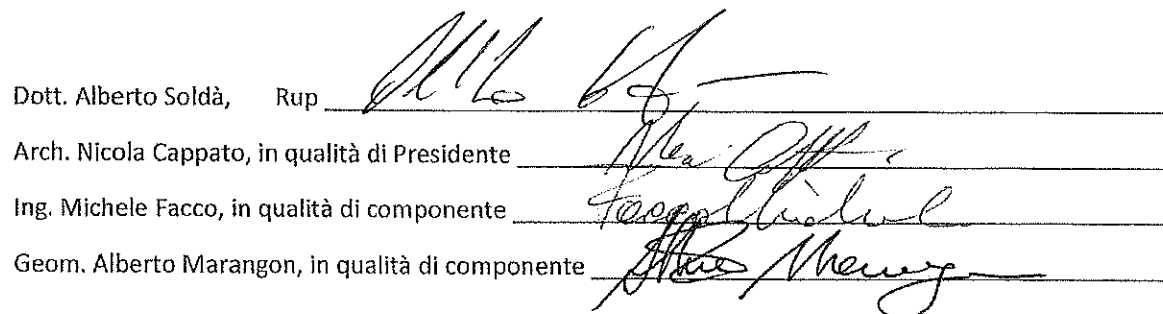 Dott. Alberto Soldà, Rup
Arch. Nicola Cappato, in qualità di Presidente
Ing. Michele Facco, in qualità di componente
Geom. Alberto Marangon, in qualità di componente